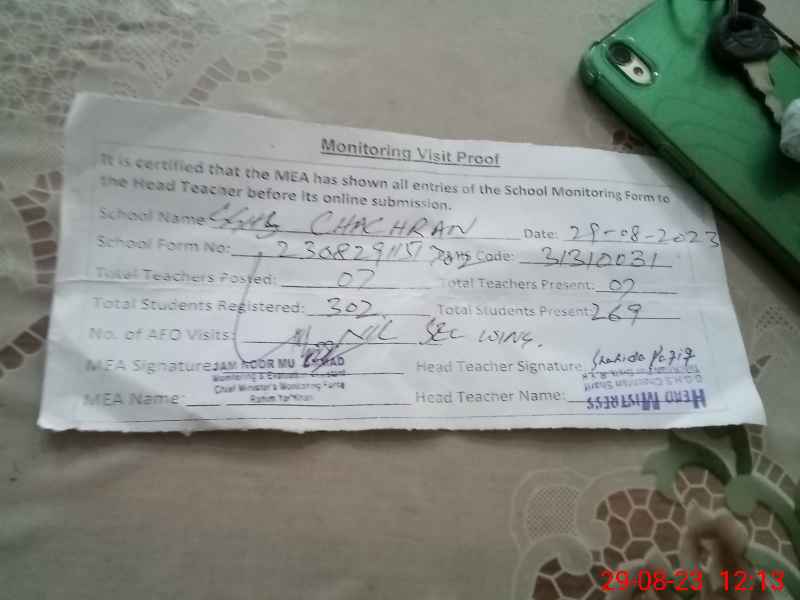 Monitoring Visit Proof
It is certified that the MEA has shown all entries of the School Monitoring Form to
the Head Teacher before its online submission.
School Name CHACHRAN Date: 29-08-2023
School Form No: Code: 31310031
Total Teachers Posted: 07 Total Teachers Present: 07
Total Students Registered: 302 Total Students Present: 269
No. of AFO Visits: NIL SEC WING.
MEA Signature Head Teacher Signature
JAM NOOR MU
Monitoring &
Chief Minister's Monitoring Force
Rahim Yar Khan
MEA Name: Head Teacher Name:
HEAD MISTRESS
29-08-23 12:13